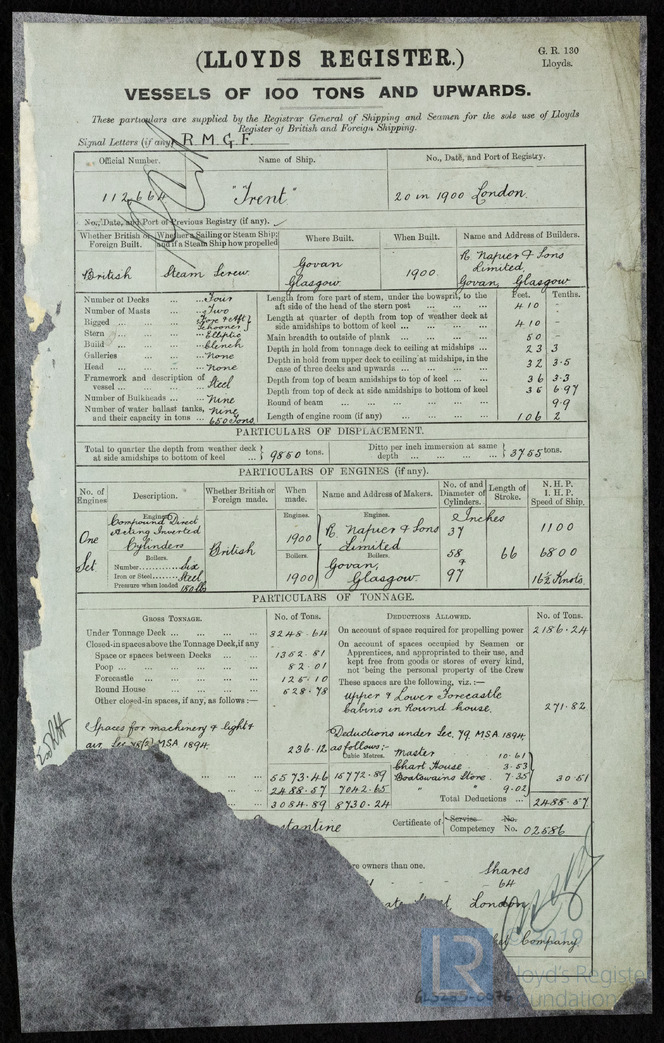 (LLOYDS REGISTER.)
G. R. 130
Lloyds.
VESSELS OF 100 TONS AND UPWARDS.
These particulars are supplied by the Registrar General of Shipping and Seamen for the sole use of Lloyds
Register of British and Foreign Shipping.
Signal Letters (if any) R.M.G.F.
Official Number. Name of Ship. No., Date, and Port of Registry.
112,664 "Trent" 20 in 1900 London
No., Date, and Port of Previous Registry (if any).
Whether British or Foreign Built. Whether a Sailing or Steam Ship; and if a Steam Ship how propelled Where Built. When Built. Name and Address of Builders.
British Steam Screw Govan Glasgow 1900 R. Napier & Sons Limited, Govan, Glasgow
Number of Decks ... ... Four
Number of Masts ... ... Two
Rigged ... ... Fore & Aft Schooner
Stern ... ... Elliptic
Build ... ... Clench
Galleries ... ... None
Head ... ... None
Framework and description of vessel ... ... Steel
Number of Bulkheads ... Nine
Number of water ballast tanks, and their capacity in tons ... Nine 650 Tons
Feet. Tenths.
Length from fore part of stem, under the bowsprit, to the aft side of the head of the stern post 410 -
Length at quarter of depth from top of weather deck at side amidships to bottom of keel ... 410 -
Main breadth to outside of plank ... 50 -
Depth in hold from tonnage deck to ceiling at midships ... 23 3
Depth in hold from upper deck to ceiling at midships, in the case of three decks and upwards ... 32 3.5
Depth from top of beam amidships to top of keel ... 36 3.3
Depth from top of deck at side amidships to bottom of keel 35 6.97
Round of beam ... 9.9
Length of engine room (if any) ... 106 2
PARTICULARS OF DISPLACEMENT.
Total to quarter the depth from weather deck at side amidships to bottom of keel ... 9850 tons.
Ditto per inch immersion at same depth ... 37.55 tons.
PARTICULARS OF ENGINES (if any).
No. of Engines Description. Whether British or Foreign made. When made. Name and Address of Makers. No. of and Diameter of Cylinders. Length of Stroke. N. H. P. I. H. P. Speed of Ship.
One Set
Engines
Compound Direct Acting Inverted Cylinders
Boilers.
Number Six
Iron or Steel Steel
Pressure when loaded 180 lbs
British
Engines. 1900
Boilers. 1900
Engines.
R. Napier & Sons
Limited
Boilers.
Govan,
Glasgow.
Inches
37
58
&
97
66
1100
6800
16½ Knots
PARTICULARS OF TONNAGE.
GROSS TONNAGE. No. of Tons.
Under Tonnage Deck ... 3248.64
Closed-in spaces above the Tonnage Deck, if any
Space or spaces between Decks ... 1352.81
Poop ... 82.01
Forecastle ... 125.10
Round House ... 528.78
Other closed-in spaces, if any, as follows:—
Spaces for machinery & light &
air Sec 78(2) MSA 1894 236.12
5573.46 15772.89
2488.57 7042.65
3084.89 8730.24
DEDUCTIONS ALLOWED. No. of Tons.
On account of space required for propelling power 2186.24
On account of spaces occupied by Seamen or Apprentices, and appropriated to their use, and kept free from goods or stores of every kind, not being the personal property of the Crew
These spaces are the following, viz.:—
Upper & Lower Forecastle
Cabins in Round house. 271.82
Deductions under Sec. 79. MSA. 1894.
as follows:-
Cubic Metres.
Master 10.61
Chart House 3.53
Boatswains Store 7.35 30.51
" " 9.02
Total Deductions ... 2488.57
stantine Certificate of Service No.
Competency No. 02586
re owners than one.
Shares
64
London
Company
© 2019
LR
Lloyd's Register
Foundation